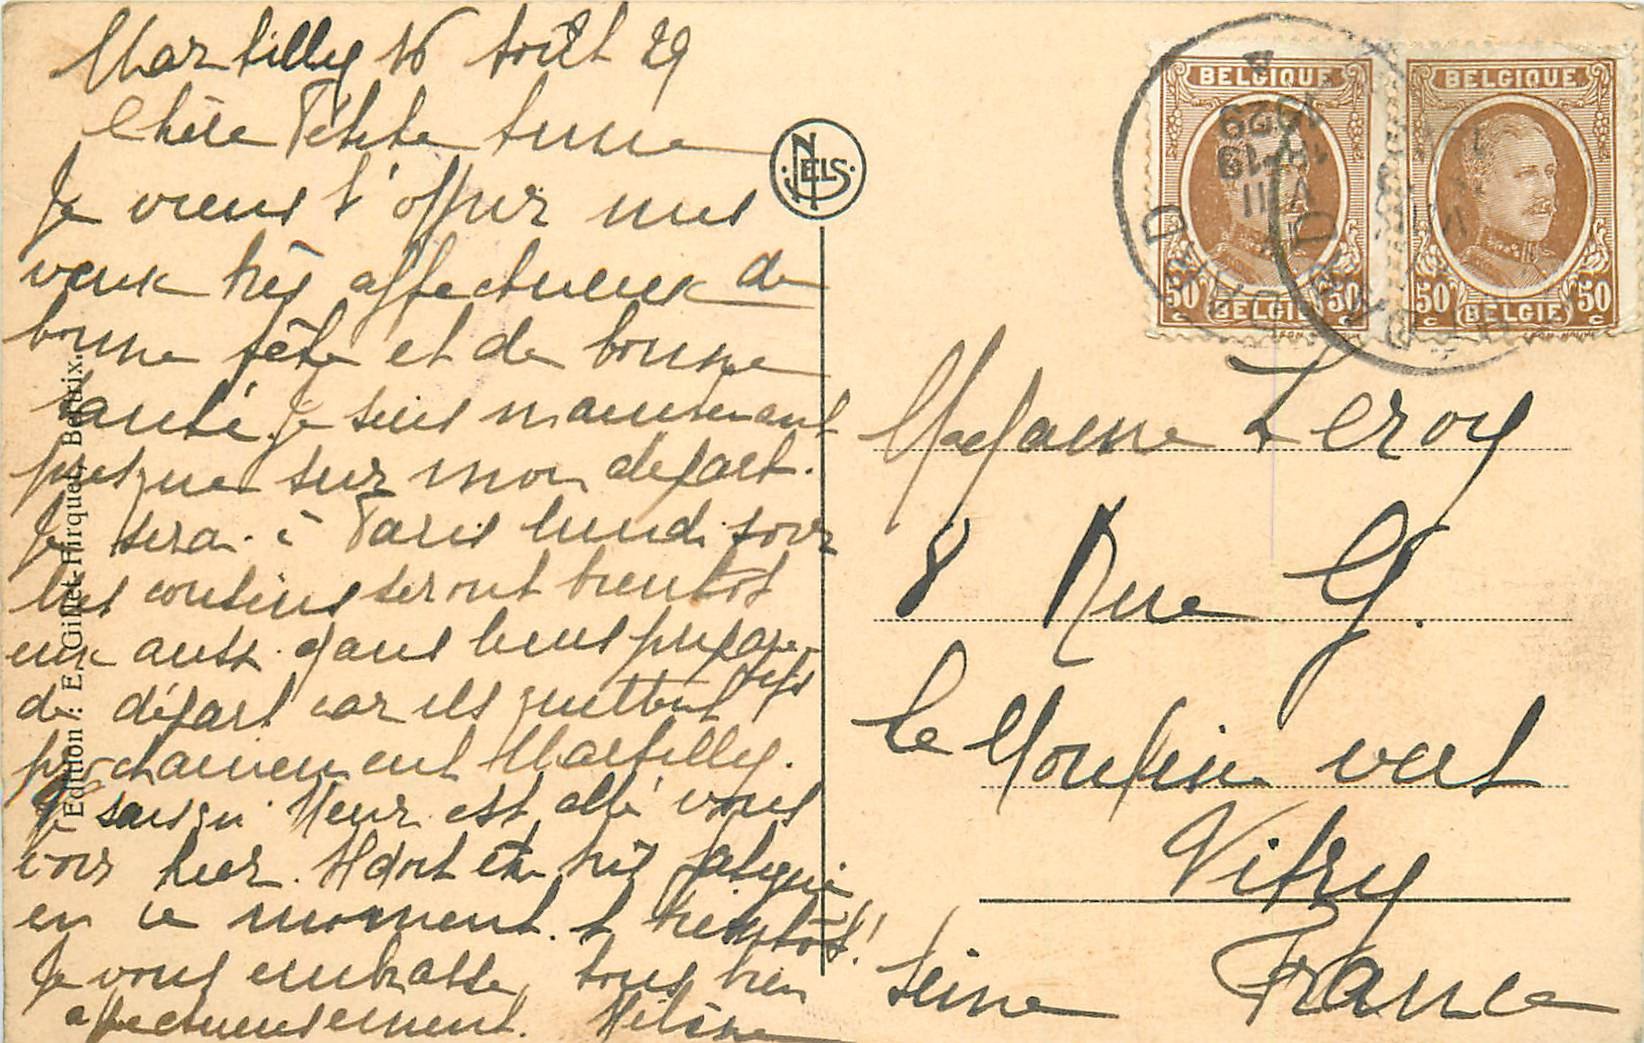 Martilly 16 Août 29
Chère Petite
Je viens t'offrir mes
vœux très affectueux de
bonne fête et de bonne
santé. Je suis maintenant
presque sur mon départ.
Je serai à Paris lundi soir
Les cousins seront bientôt
eux aussi dans leurs prépara-
tifs
de départ car ils quittent
prochainement Martilly.
Je sais qu' est allé vous
voir hier. Il doit être très fatigué
en ce moment. A bientôt!
Je vous embrasse tous bien
affectueusement. Hélène
Edition : E. Gillet-Hirquet, Bertrix.
NELS
BELGIQUE
50 c 50 c
BELGIE
BELGIQUE
50 c 50 c
BELGIE
VIII
1929
Madame Leroy
8 Rue G.
Le Moulin vert
Vitry
Seine France